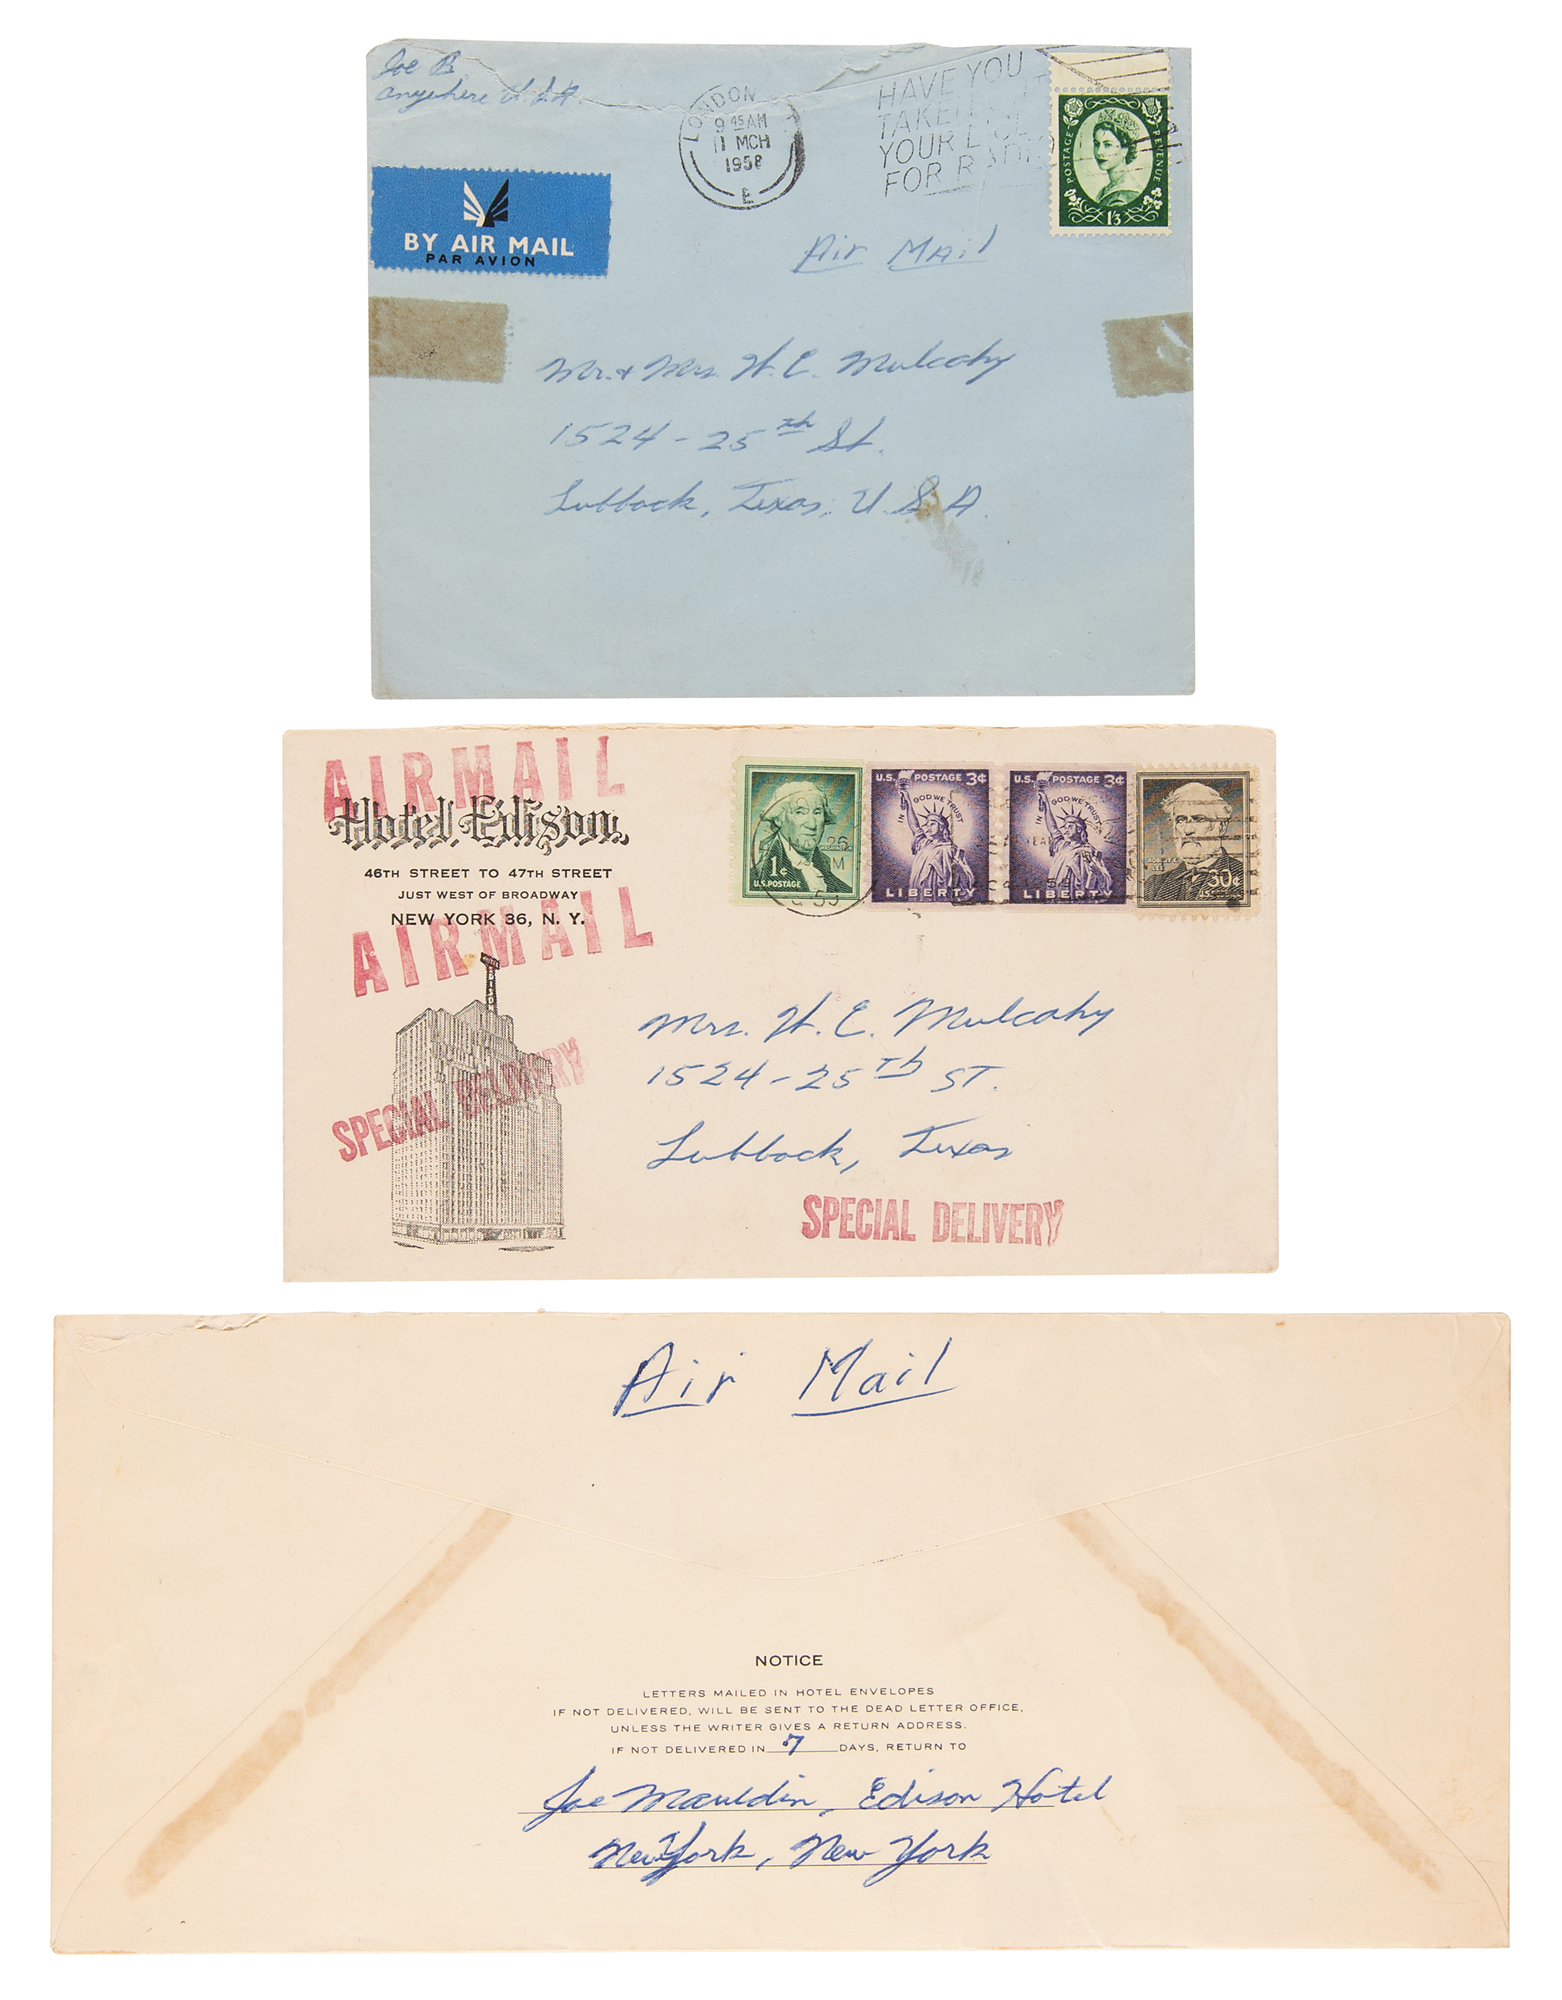 Joe B
Anywhere U.S.A.
LONDON
9 45 AM
11 MCH
1958
E
HAVE YOU
TAKEN
YOUR
FOR RADIO
POSTAGE
REVENUE
1/3
BY AIR MAIL
PAR AVION
Air Mail
Mr. & Mrs. H. E. Mulcahy
1524 - 25th St.
Lubbock, Texas, U.S.A.
AIRMAIL
Hotel Edison
46TH STREET TO 47TH STREET
JUST WEST OF BROADWAY
NEW YORK 36, N. Y.
AIRMAIL
EDISON
SPECIAL DELIVERY
1¢
U.S. POSTAGE
U.S. POSTAGE 3¢
IN GOD WE TRUST
LIBERTY
U.S. POSTAGE 3¢
IN GOD WE TRUST
LIBERTY
30¢
Mrs. H. E. Mulcahy
1524 - 25Th ST.
Lubbock, Texas
SPECIAL DELIVERY
Air Mail
NOTICE
LETTERS MAILED IN HOTEL ENVELOPES
IF NOT DELIVERED, WILL BE SENT TO THE DEAD LETTER OFFICE,
UNLESS THE WRITER GIVES A RETURN ADDRESS.
IF NOT DELIVERED IN 7 DAYS, RETURN TO
Joe Mauldin, Edison Hotel
New York, New York